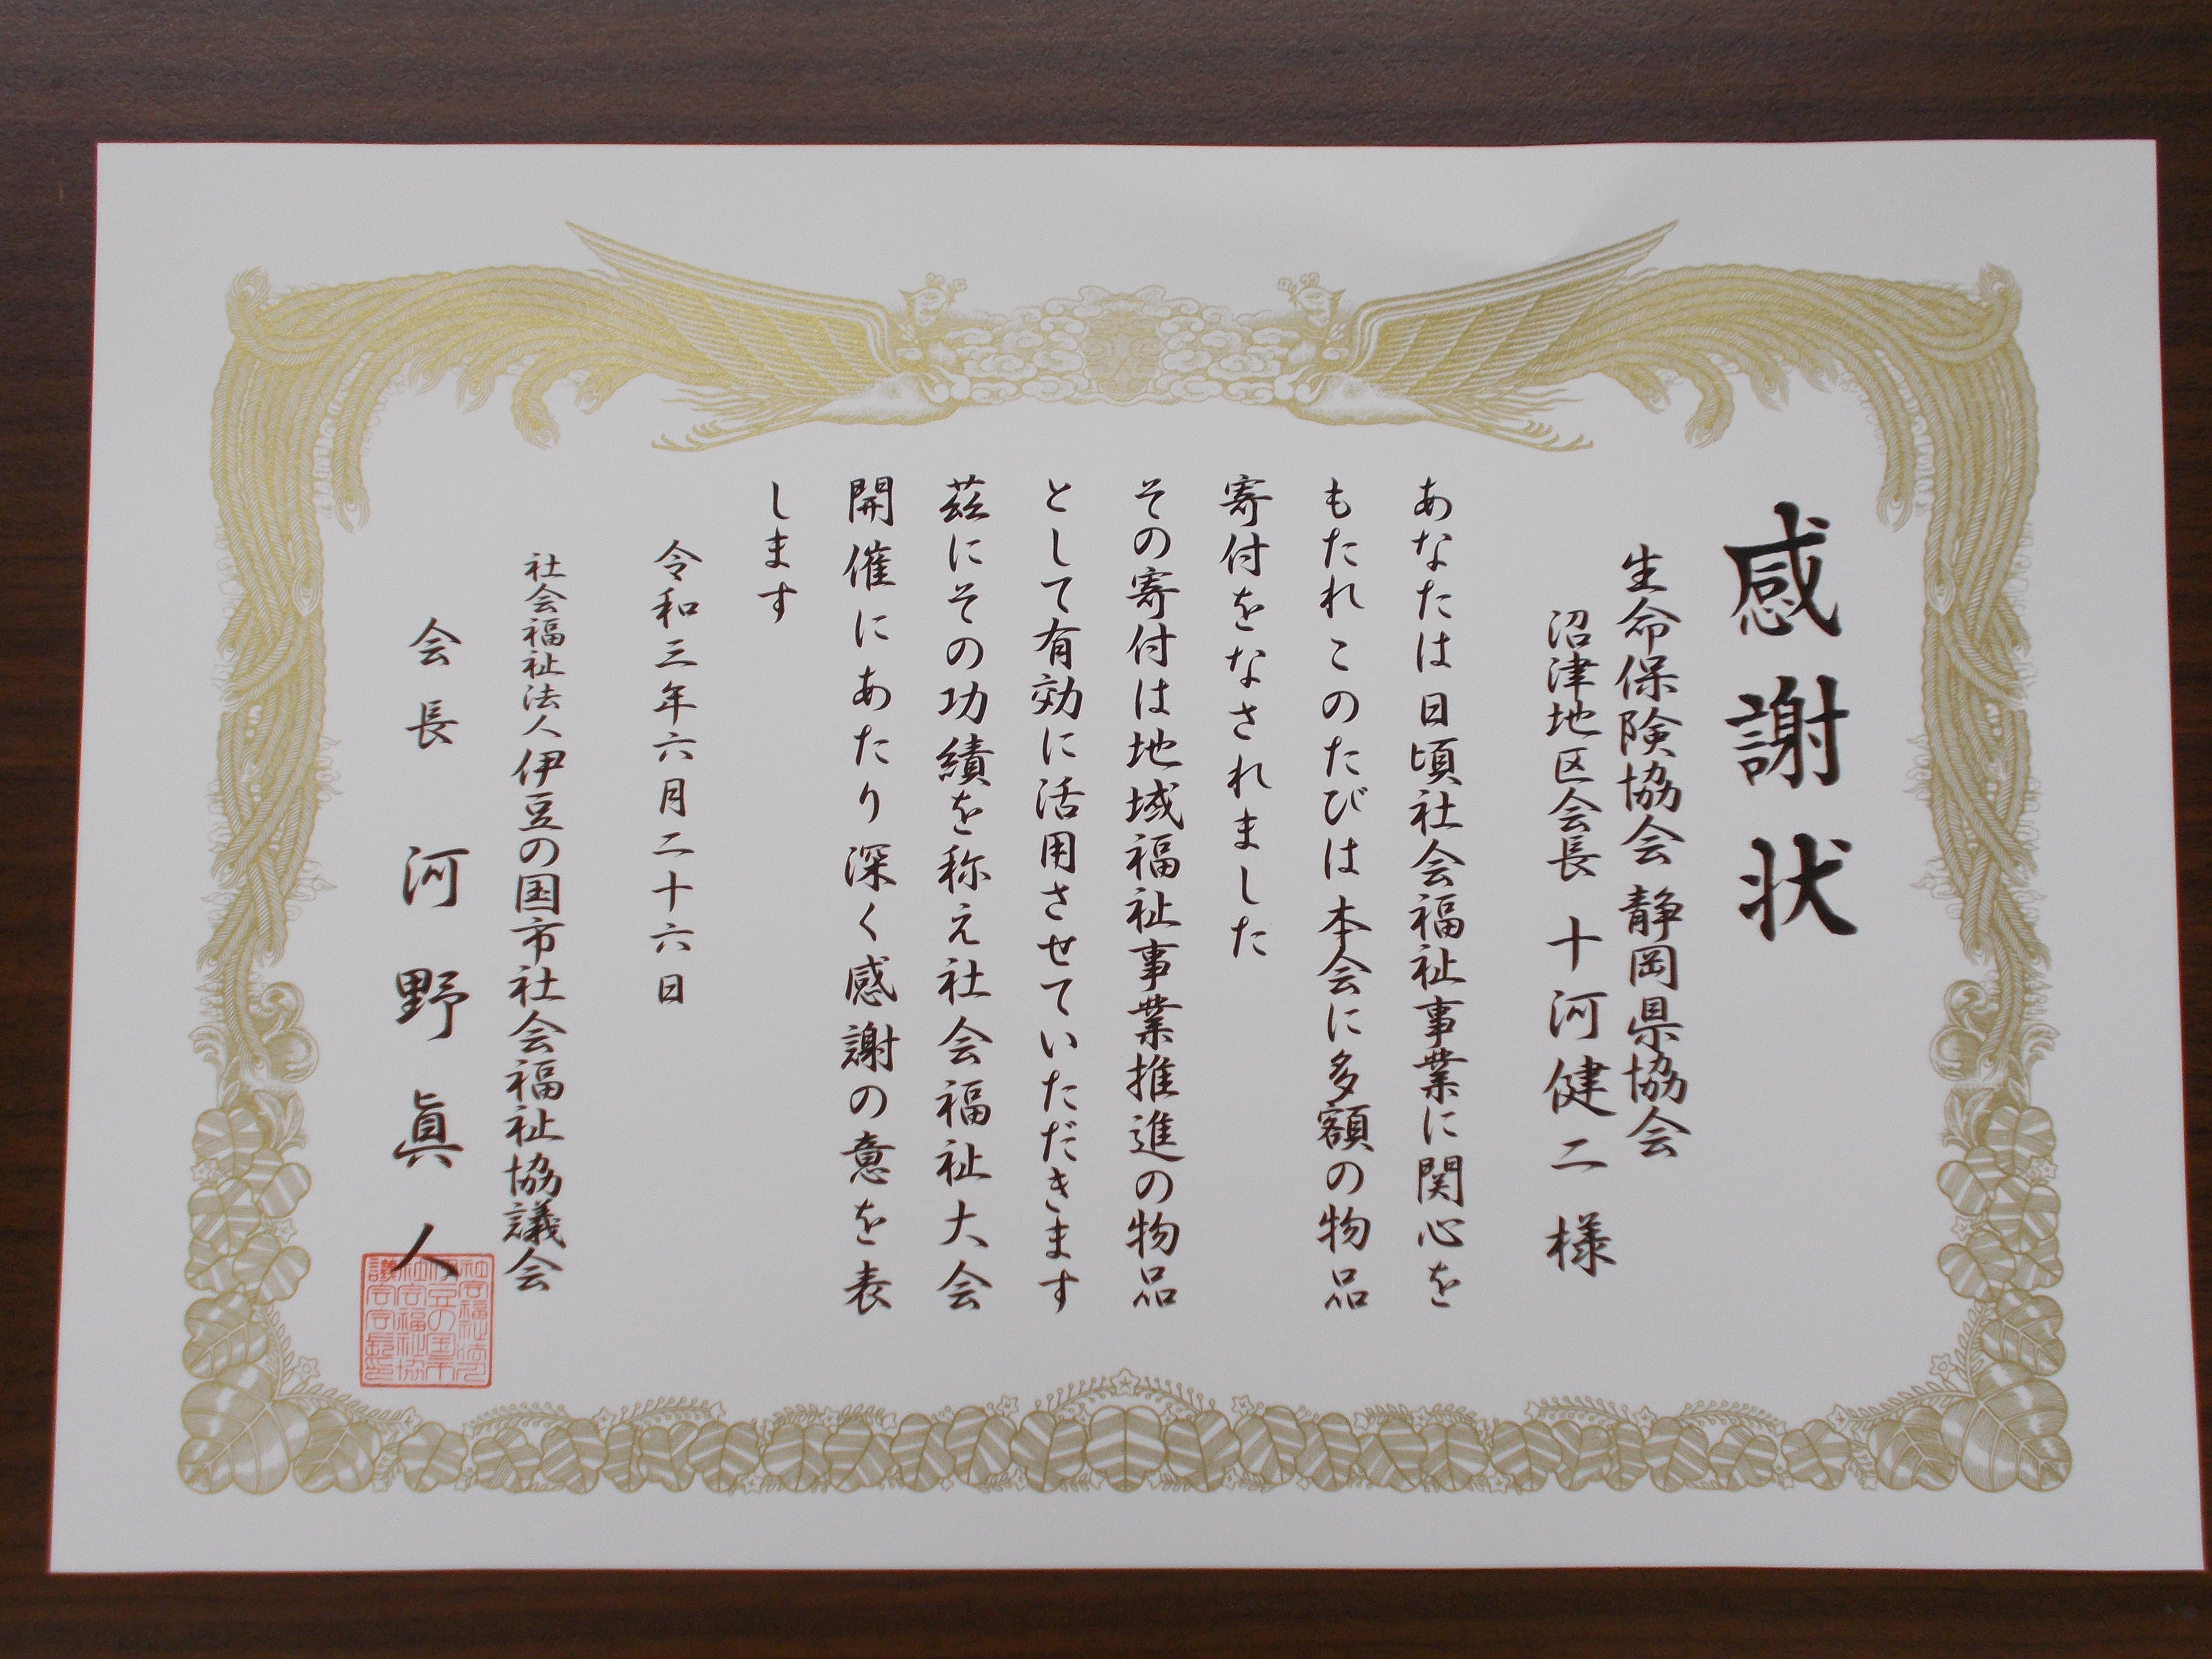 感謝状
生命保険協会 静岡県協会
沼津地区会長 十河健二 様
あなたは日頃社会福祉事業に関心を
もたれこのたびは本会に多額の物品
寄付をなされました
その寄付は地域福祉事業推進の物品
として有効に活用させていただきます
茲にその功績を称え社会福祉大会
開催にあたり深く感謝の意を表
します
令和三年六月二十六日
社会福祉法人伊豆の国市社会福祉協議会
会長 河野眞人
社会福祉法人
伊豆の国市
社会福祉協
議会会長印